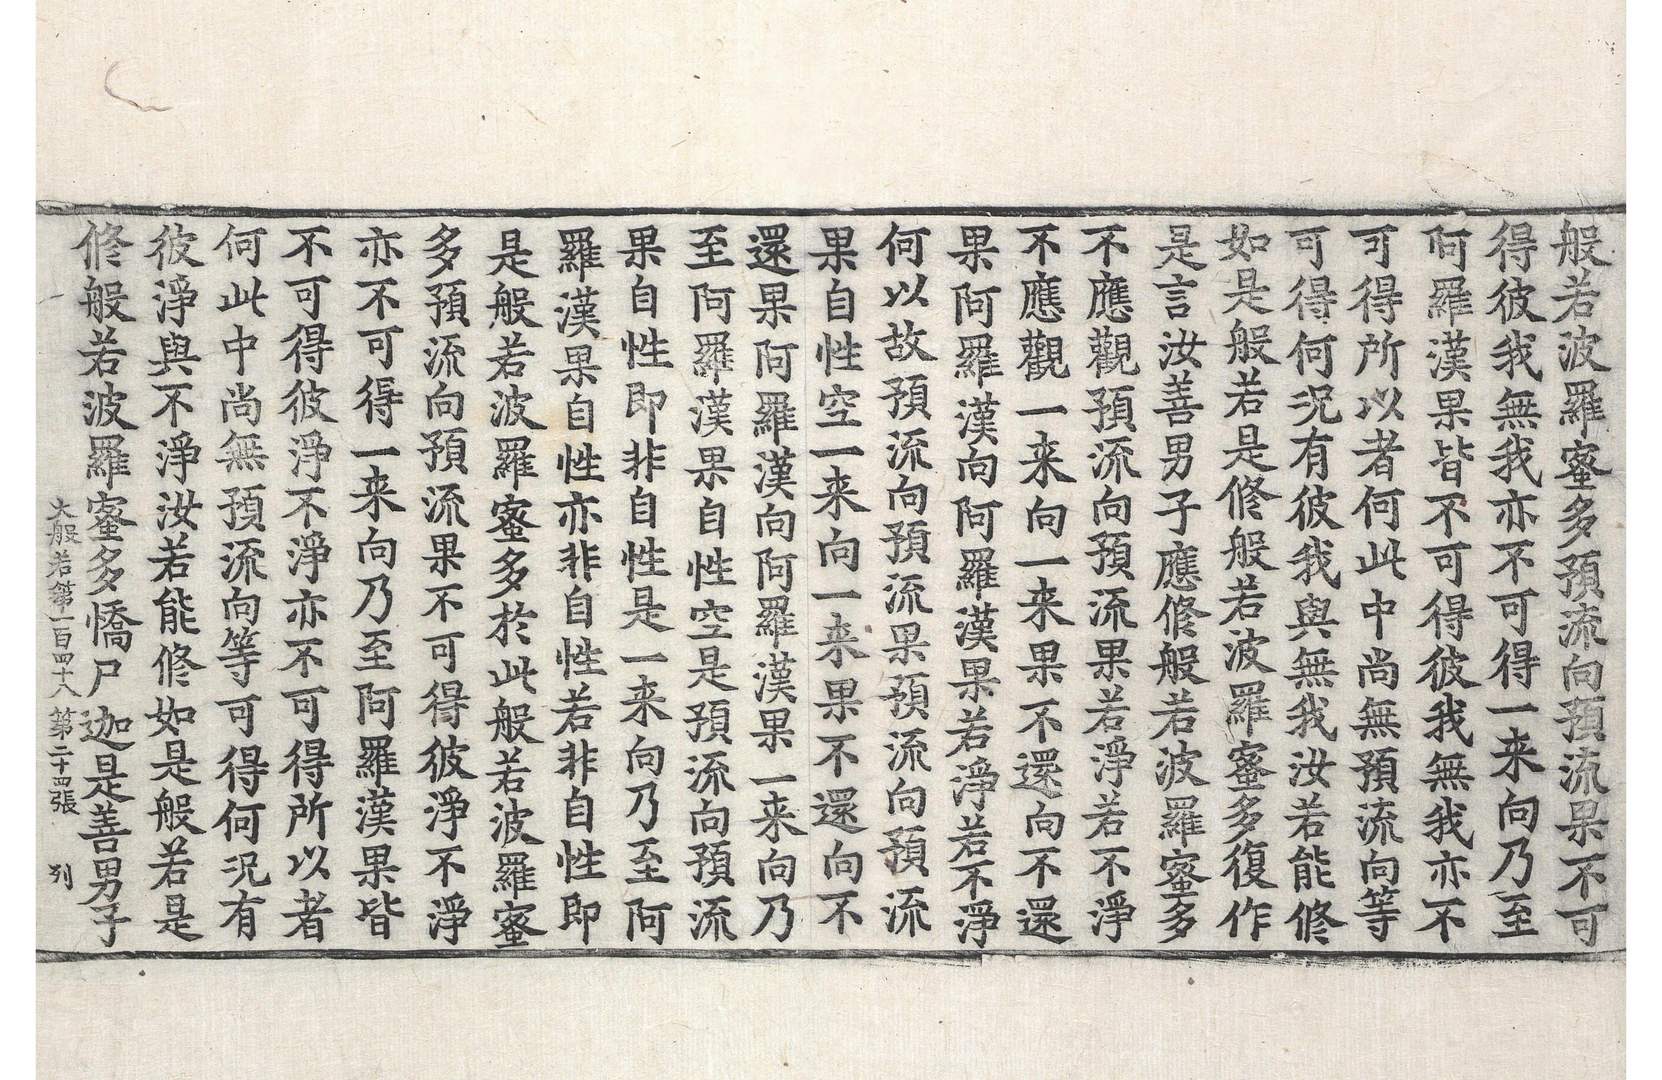 般若波羅蜜多預流向預流果不可
得彼我無我亦不可得一来向乃至
阿羅漢果皆不可得彼我無我亦不
可得所以者何此中尚無預流向等
可得何況有彼我與無我汝若能修
如是般若是修般若波羅蜜多復作
是言汝善男子應修般若波羅蜜多
不應觀預流向預流果若淨若不淨
不應觀一来向一来果不還向不還
果阿羅漢向阿羅漢果若淨若不淨
何以故預流向預流果預流向預流
果自性空一来向一来果不還向不
還果阿羅漢向阿羅漢果一来向乃
至阿羅漢果自性空是預流向預流
果自性即非自性是一来向乃至阿
羅漢果自性亦非自性若非自性即
是般若波羅蜜多於此般若波羅蜜
多預流向預流果不可得彼淨不淨
亦不可得一来向乃至阿羅漢果皆
不可得彼淨不淨亦不可得所以者
何此中尚無預流向等可得何況有
彼淨與不淨汝若能修如是般若是
修般若波羅蜜多憍尸迦是善男子
大般若第一百四十八 第二十四張 列